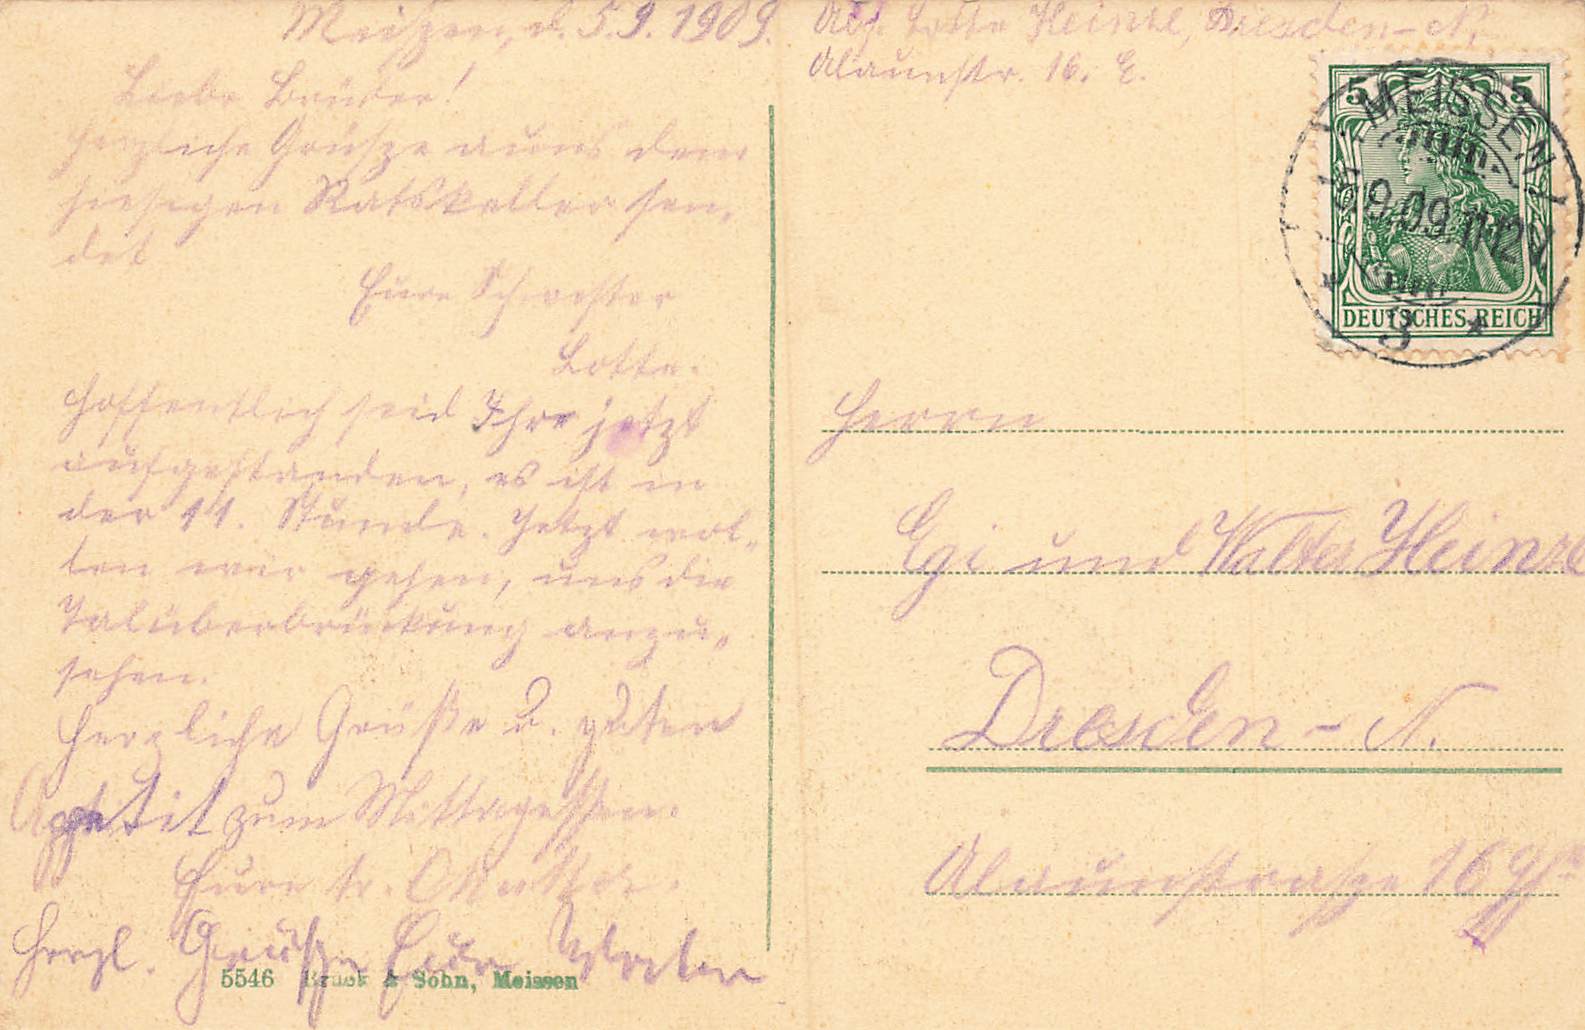 Meißen, d. 5.9.1909.
Liebe Brüder!
Herzliche Grüsze auns dem
hiesigen Ratskeller sen-
det
Eure Schwester
Lotte.
Hoffentlich seid Ihr jetzt
aufgestanden, es ist in
der 11. Stunde. Jetzt wol-
len wir gehen, uns die
Talüberbrückung anzu-
sehen.
Herzliche Grüße u. guten
Appetit zum Mittagessen.
Eure tr. Mutter.
Herzl. Grüsze Euer Vater
5546 Bruck & Sohn, Meissen
Abs. Lotte Heinze, Dresden-N.
Alaunstr. 16. E.
5 5
DEUTSCHES REICH
MEISSEN 1
5.9.09.11-12V
* 3 *
Herrn
Egi und Walter Heinze
Dresden-N.
Alaunstrasze 16